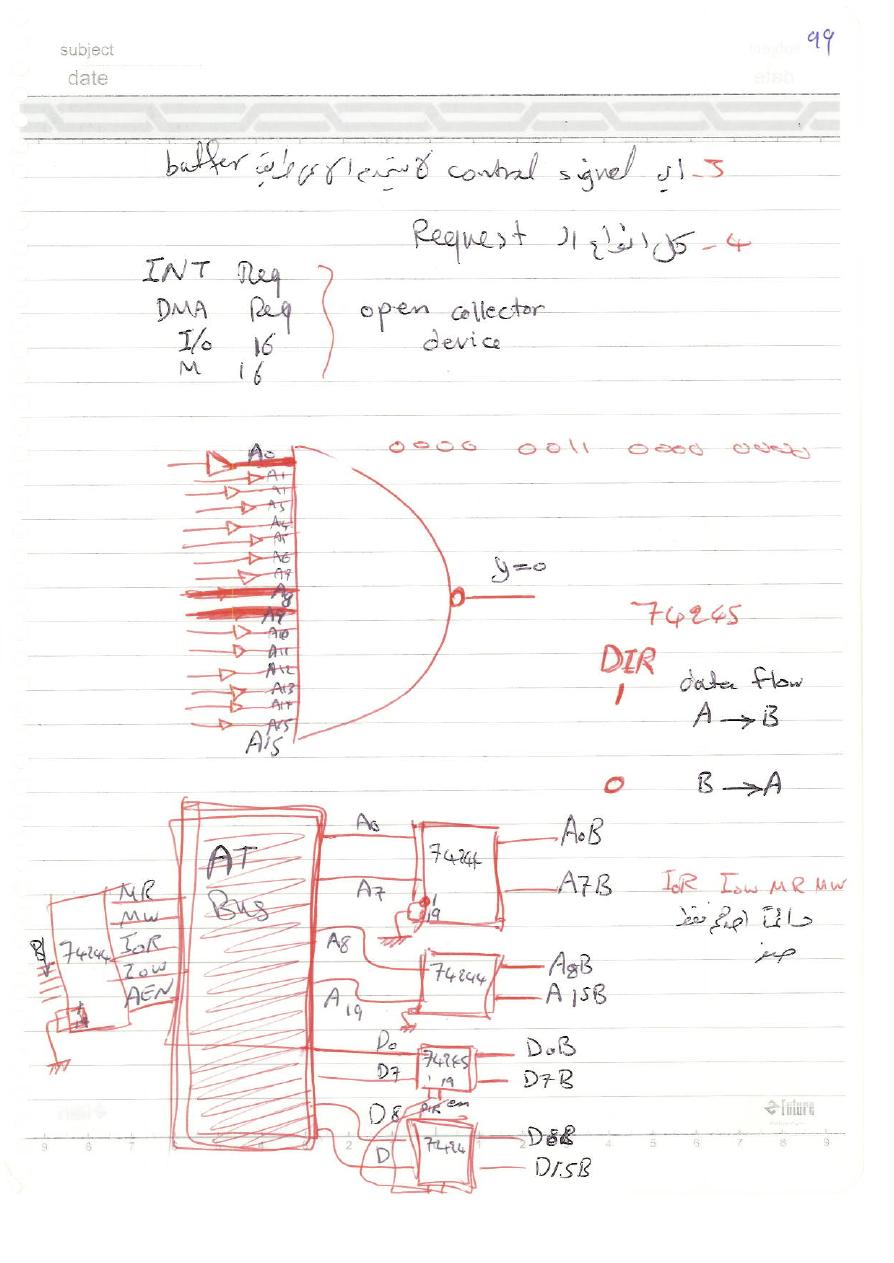 99
subject
date
3- ال control signal لا تستخدم الا عن طريق buffer
4- كل انواع ال Request
INT Req
DMA Req
I/o 16
M 16
open collector
device
0000 0011 0000 0000
A0
A1
A1
A3
A4
A5
A6
A9
A8
A9
A10
A11
A12
A13
A14
A15
A15
y=0
74245
DIR
data flow
1 A → B
0 B → A
AT
Bus
MR
MW
IoR
Iow
AEN
74244
B
A0 74244 A0B
A7 A7B
1
19
A8 74244 A8B
A19 A15B
D0 74245 D0B
D7 1 19 D7B
DIR en
D8
D D15B
IoR Iow MR MW
فقط
صفر
future